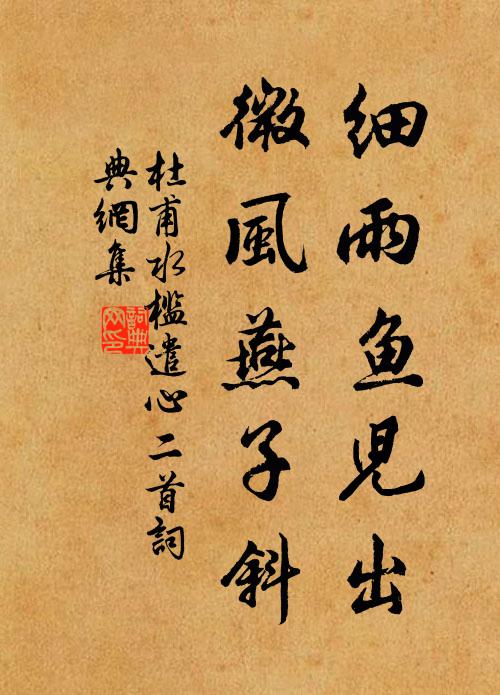 細雨鱼兒出
微風燕子斜
杜甫水檻遣心二首詞
典網集
詞典
网印